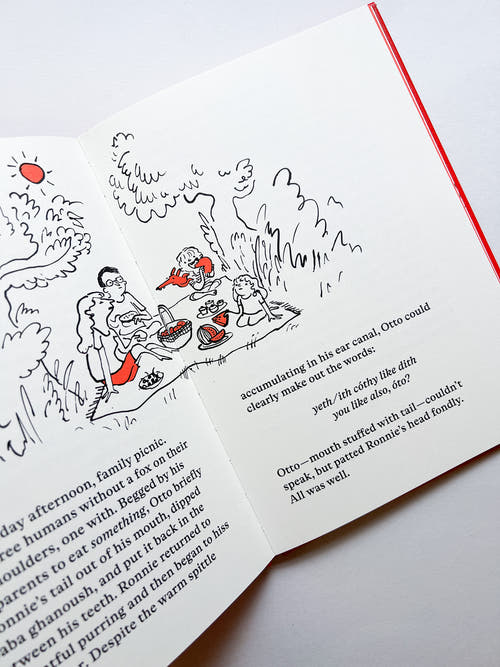 day afternoon, family picnic.
ree humans without a fox on their
oulders, one with. Begged by his
parents to eat something, Otto briefly
onnie's tail out of his mouth, dipped
aba ghanoush, and put it back in the
tween his teeth. Ronnie returned to
tful purring and then began to hiss
r. Despite the warm spittle
accumulating in his ear canal, Otto could
clearly make out the words:
yeth/ith cóthy like dith
you like also, óto?
Otto—mouth stuffed with tail—couldn't
speak, but patted Ronnie's head fondly.
All was well.